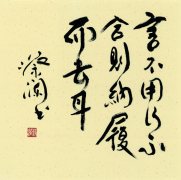 言不用行不
合則納履
而去耳
蔡瀾書